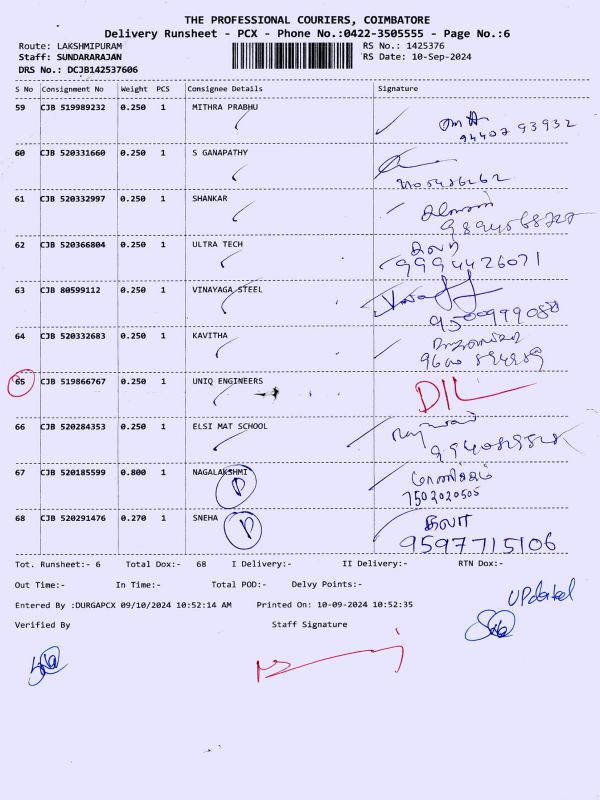 THE PROFESSIONAL COURIERS, COIMBATORE
Delivery Runsheet - PCX - Phone No.:0422-3505555 - Page No.:6
Route: LAKSHMIPURAM RS No.: 1425376
Staff: SUNDARARAJAN RS Date: 10-Sep-2024
DRS No.: DCJB142537606
S No Consignment No Weight PCS Consignee Details Signature
59 CJB 519989232 0.250 1 MITHRA PRABHU
94407 93932
60 CJB 520331660 0.250 1 S GANAPATHY
61 CJB 520332997 0.250 1 SHANKAR
62 CJB 520366804 0.250 1 ULTRA TECH
9994426071
63 CJB 80599112 0.250 1 VINAYAGA STEEL
9500999088
64 CJB 520332683 0.250 1 KAVITHA
65 CJB 519866767 0.250 1 UNIQ ENGINEERS DIL
66 CJB 520284353 0.250 1 ELSI MAT SCHOOL
67 CJB 520185599 0.800 1 NAGALAKSHMI
D
7502020505
68 CJB 520291476 0.270 1 SNEHA கலா
D
9597715106
Tot. Runsheet:- 6 Total Dox:- 68 I Delivery:- II Delivery:- RTN Dox:-
Out Time:- In Time:- Total POD:- Delvy Points:-
UPdated
Entered By :DURGAPCX 09/10/2024 10:52:14 AM Printed On: 10-09-2024 10:52:35
Verified By Staff Signature